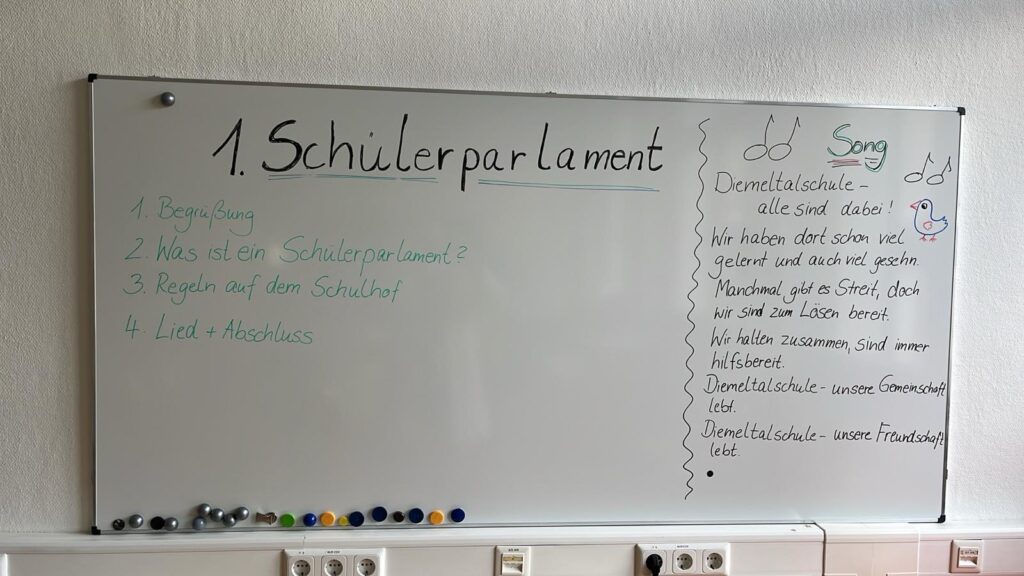 1. Schülerparlament
1. Begrüßung
2. Was ist ein Schülerparlament?
3. Regeln auf dem Schulhof
4. Lied + Abschluss
Song
Diemeltalschule -
alle sind dabei!
Wir haben dort schon viel
gelernt und auch viel gesehn.
Manchmal gibt es Streit, doch
wir sind zum Lösen bereit.
Wir halten zusammen, sind immer
hilfsbereit.
Diemeltalschule - unsere Gemeinschaft
lebt.
Diemeltalschule - unsere Freundschaft
lebt.